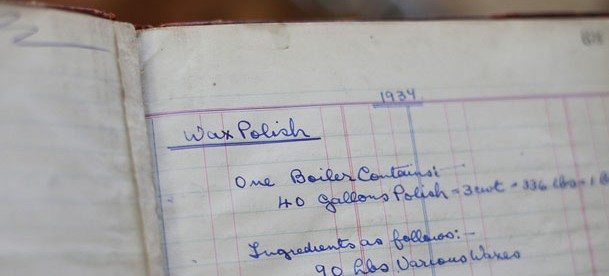 1934
Wax Polish
One Boiler Contains:-
40 gallons Polish = 3 cwt = 336 lbs = 1
Ingredients as follows:-
90 lbs Various Waxes